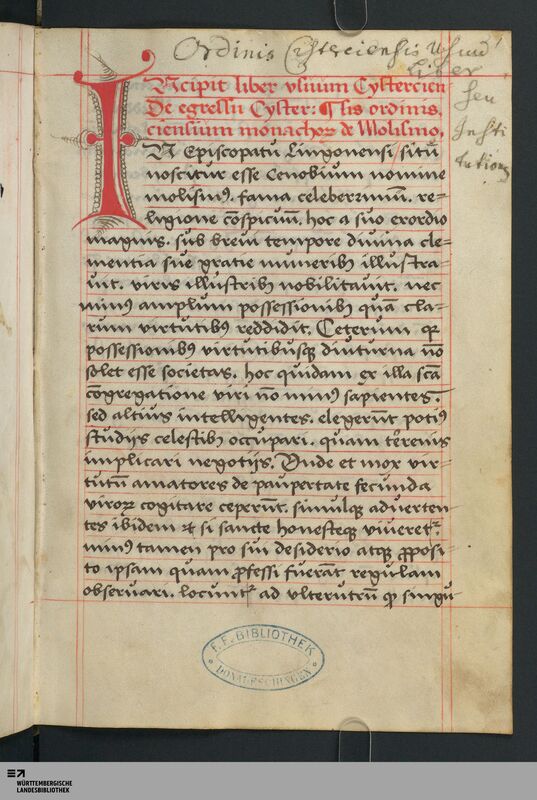 Ordinis Cisterciensis Usuum
Liber
seu
Insti
tutiones
INcipit liber vsuum Cystercien
De egressu Cyster: ¶ sis ordinis.
ciensium monachoꝝ de Molismo.
IN Episcopatu Lingonensi situ̅
noscitur esse Cenobium nomine
molismꝰ. fama celeberrimu̅. re-
ligione co̅spicuu̅. hoc a suo exordio
magnis. sub breui tempore diuina cle-
mentia sue gratie muneribꝰ illustra-
uit. viris illustribꝰ nobilitauit. nec
minus amplum possessionibꝰ quā cla-
rum virtutibꝰ reddidit. Ceterum qꝛ
possessionibꝰ virtutibusqꝫ diuturna nō
solet esse societas. hoc quidam ex illa scā
co̅gregatione viri nō minꝰ sapientes.
sed altius intelligentes. elegerūt potiꝰ
studijs celestibꝰ occupari. quam terrenis
implicari negotijs. Vnde et mox vir-
tutū amatores de paupertate fecunda
viroꝝ cogitare ceperūt. simulqꝫ aduerten-
tes ibidem et si sancte honesteqꝫ viueretꝛ.
minus tamen pro sui desiderio atqꝫ ꝓposi-
to ipsam quam ꝓfessi fuerāt regulam
obseruari. locuntꝛ ad vlterutrū qꝫ singu
F. F. BIBLIOTHEK
DONAUESCHINGEN
WÜRTTEMBERGISCHE
LANDESBIBLIOTHEK